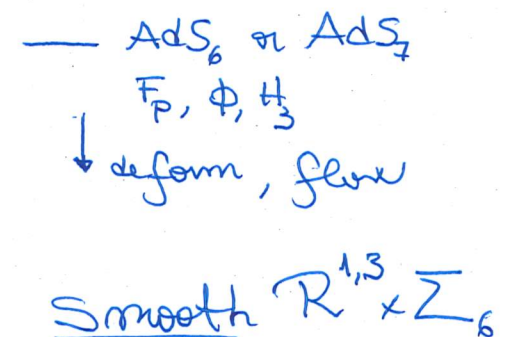 — AdS₆ or AdS₇
F_p, Φ, H₃
↓ deform, flow
Smooth R^{1,3} × Σ₆